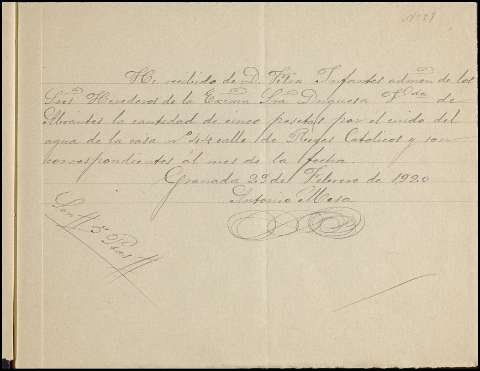 Nº 29
He recibido de D. Felix Infantes admon de los
Sres Herederos de la Excma Sra Duquesa Vda de
Abrantes la cantidad de cinco pesetas por el cuido del
agua de la casa nº 44 calle de Reyes Catolicos y son
correspondientes al mes de la fecha.
Granada 29 del Febrero de 1920
Antonio Mesa
Son // 5 " Ptas //